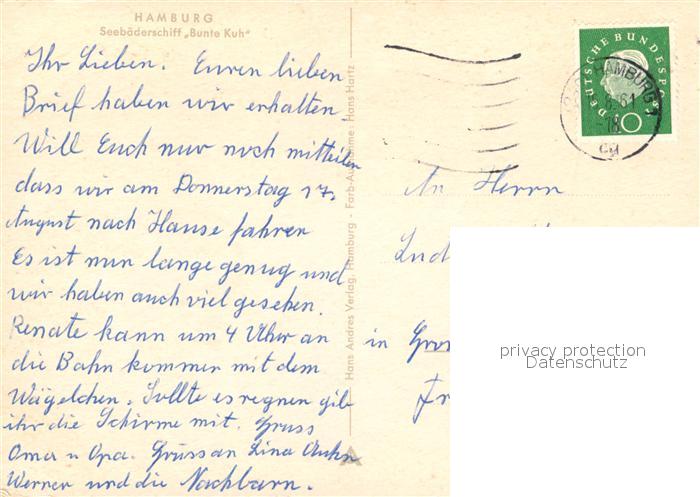 HAMBURG
Seebäderschiff „Bunte Kuh"
Ihr Lieben. Euren lieben
Brief haben wir erhalten
Will Euch nur noch mitteilen
dass wir am Donnerstag 17.
August nach Hause fahren
Es ist nun lange genug und
wir haben auch viel gesehen.
Renate kann um 4 Uhr an
die Bahn kommen mit dem
Wägelchen. Sollte es regnen gib
ihr die Schirme mit. Gruss
Oma u Opa. Gruss an Lina
Werner und die Nachbarn.
Hans Andres Verlag, Hamburg - Farb-Aufnahme: Hans Hartz
A
DEUTSCHE BUNDESPOST
10
HAMBURG
61
18
An Herrn
in
privacy protection
Datenschutz